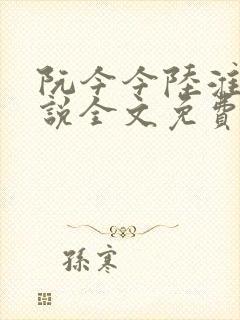 阮今今陸淮
說全文免費
孫寒